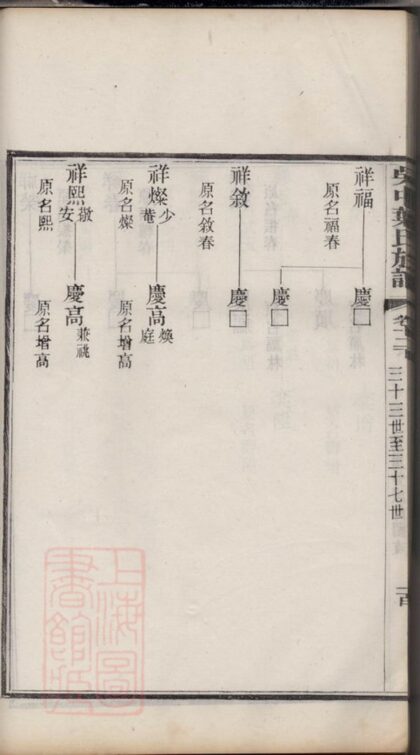 吳中葉氏族譜
三十三世至三十七世
祥福 慶□
原名福春
慶□
祥敘 慶□
原名敘春
祥燦 少菴 慶高 煥庭
原名燦 原名增高
祥熙 安 慶高 兼祧
原名熙 原名增高
上海圖書館藏